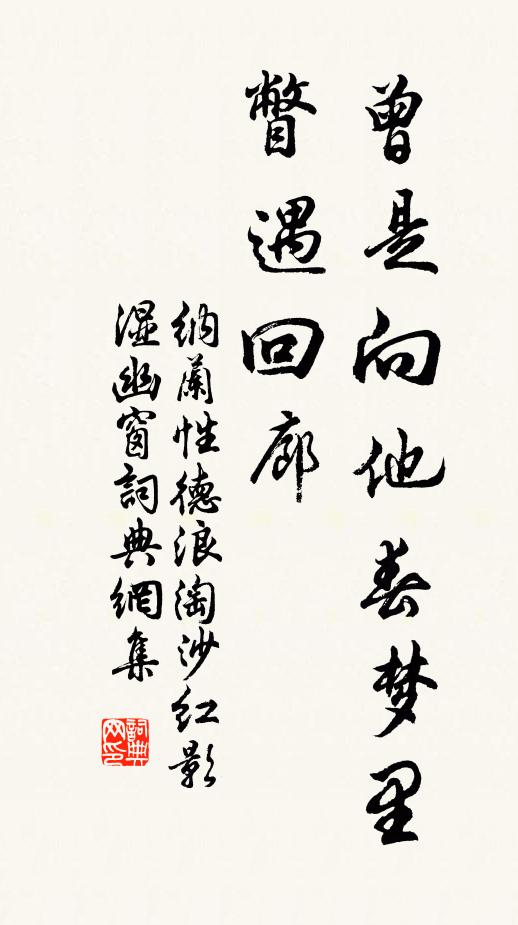 曾是向他春梦里
瞥遇回廊
纳蘭性德浪淘沙红影
湿幽窗詞典網集
詞典网印